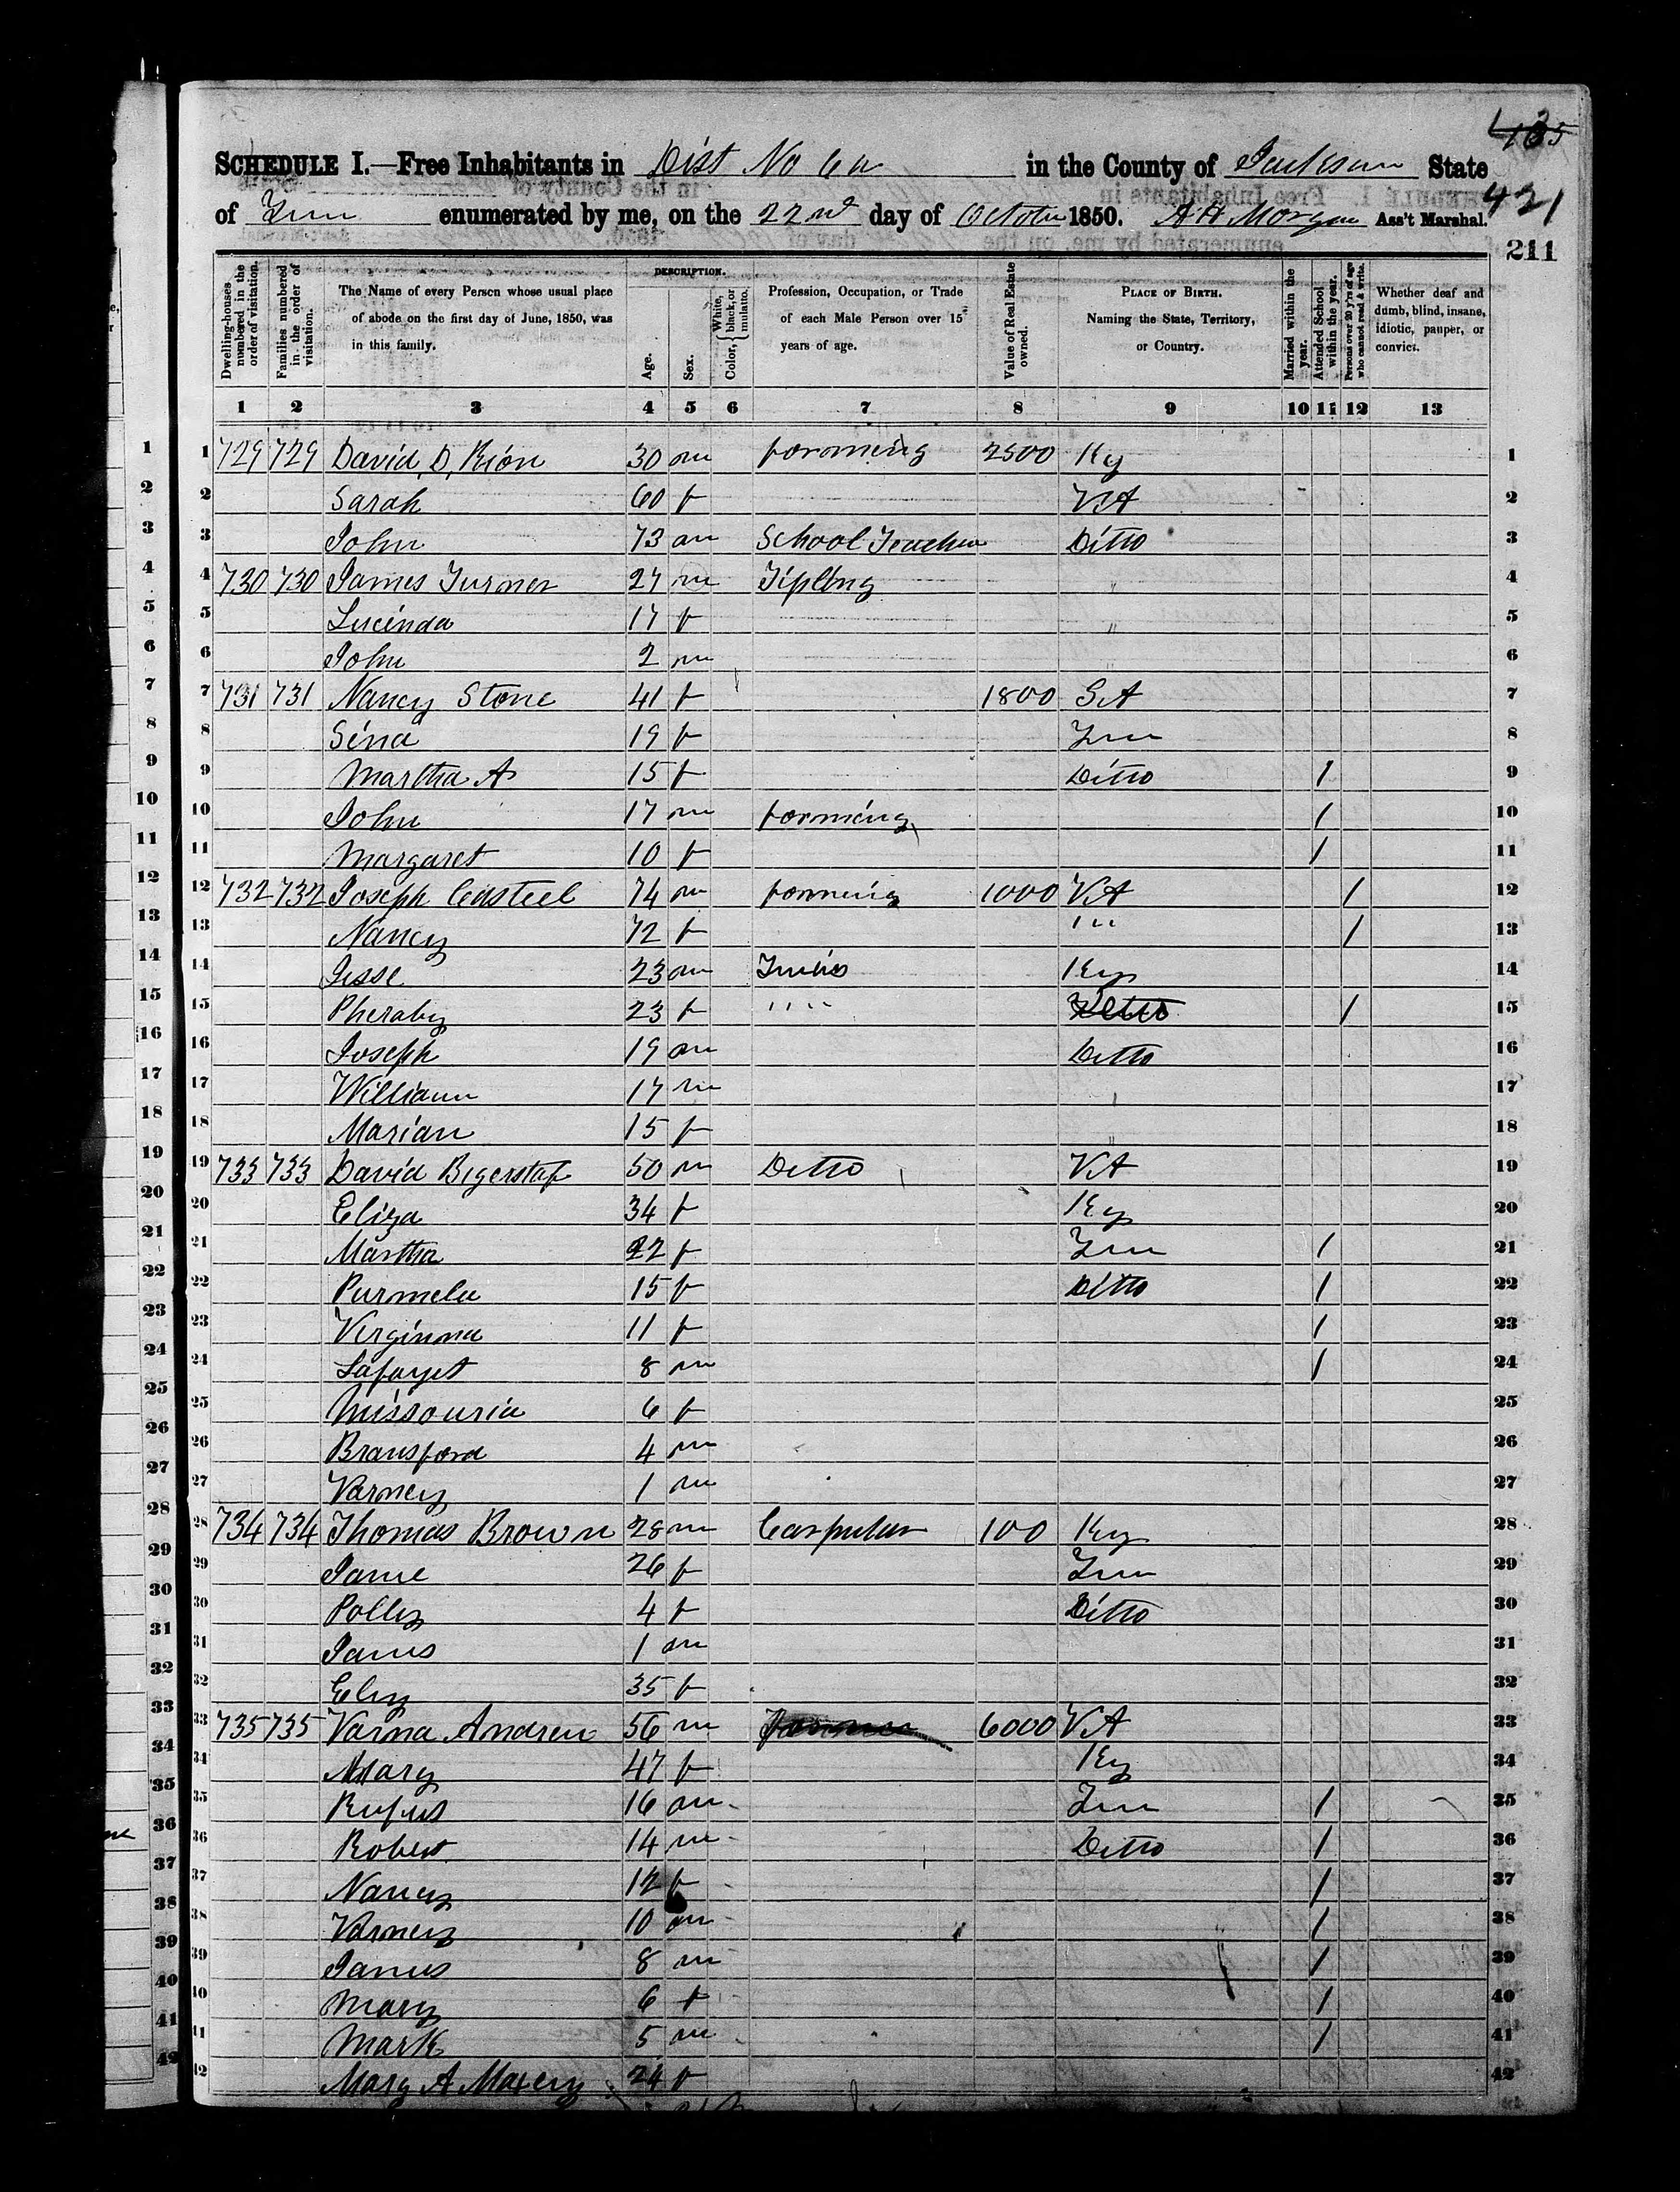 435
SCHEDULE I.—Free Inhabitants in Dist No 6 in the County of Jackson State
of Tenn enumerated by me, on the 22nd day of October 1850. A H Morgan Ass't Marshal. 421
211
Dwelling-houses numbered in the order of visitation.
Families numbered in the order of visitation.
The Name of every Person whose usual place of abode on the first day of June, 1850, was in this family.
DESCRIPTION.
Age.
Sex.
Color, White, black, or mulatto.
Profession, Occupation, or Trade of each Male Person over 15 years of age.
Value of Real Estate owned.
PLACE OF BIRTH. Naming the State, Territory, or Country.
Married within the year.
Attended School within the year.
Persons over 20 y'rs of age who cannot read & write.
Whether deaf and dumb, blind, insane, idiotic, pauper, or convict.
1 2 3 4 5 6 7 8 9 10 11 12 13
1 729 729 David D, Rion 30 m farming 2500 Ky 1
2 Sarah 60 f VA 2
3 John 73 m School Teacher Ditto 3
4 730 730 James Turner 27 m Tipling " 4
5 Lucinda 17 f " 5
6 John 2 m " 6
7 731 731 Nancy Stone 41 f 1800 7
8 Sina 19 f Tenn 8
9 Martha A 15 f Ditto 1 9
10 John 17 m farming 1 10
11 Margaret 10 f 1 11
12 732 732 Joseph Casteel 74 m farming 1000 VA 1 12
13 Nancy 72 f " 1 13
14 Jesse 23 m Ky 14
15 Pheraby 23 f " Ditto 1 15
16 Joseph 19 m Ditto 16
17 William 17 m 17
18 Marian 15 f " 18
19 733 733 David Bigerstaf 50 m Ditto VA 19
20 Eliza 34 f Ky 20
21 Martha 22 f Tenn 1 21
22 Purmela 15 f Ditto 1 22
23 Virginna 11 f 1 23
24 Lafayet 8 m 1 24
25 Missouria 6 f 25
26 Bransford 4 m 26
27 Varney 1 m 27
28 734 734 Thomas Brown 28 m Carpenter 100 Ky 28
29 Jane 26 f Tenn 29
30 Polly 4 f Ditto 30
31 James 1 m 31
32 35 f 32
33 735 735 Varna Andrew 56 m 6000 VA 33
34 Mary 47 f Ky 34
35 Rufus 16 m Tenn 1 35
36 Robert 14 m Ditto 1 36
37 Nancy 12 f 1 37
38 Varney 10 m 1 38
39 James 8 m 1 39
40 Mary 6 f 1 40
41 Mark 5 m 1 41
42 Mary A Maxey 24 f 42